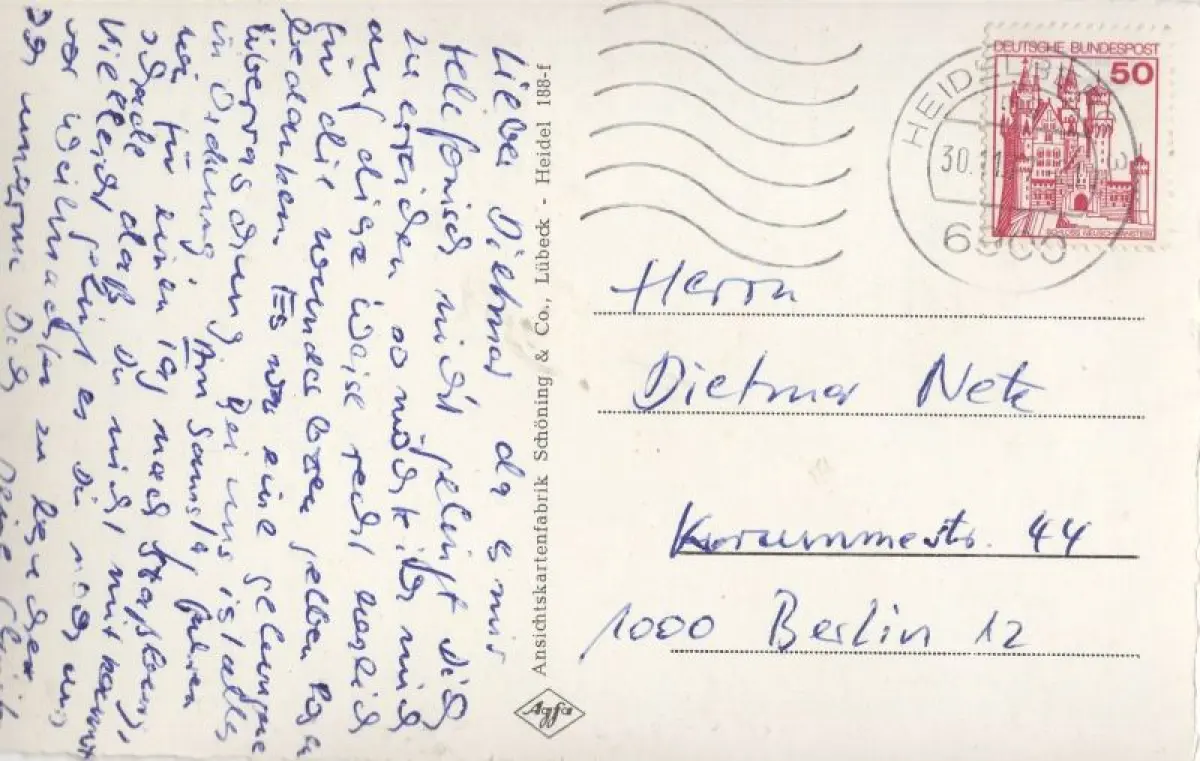 Lieber Dietmar da es mir
telefonisch nicht gelingt dich
zu erreichen so möchte ich mich
auf diese Weise recht herzlich
für die wunderbaren gelben Rosen
bedanken. Es war eine gelungene
Überraschung. Bei uns ist alles
in Ordnung. Am Samstag fahren
wir für einen Tag nach Straßburg,
schade daß Du nicht mit kannst
Vielleicht gelingt es Dir noch uns
vor Weihnachten zu
Ansichtskartenfabrik Schöning & Co., Lübeck - Heidel 188-f
Agfa
DEUTSCHE BUNDESPOST
50
SCHLOSS NEUSCHWANSTEIN
HEIDELBERG
30.
Herrn
Dietmar Netz
Krummestr. 44
1000 Berlin 12